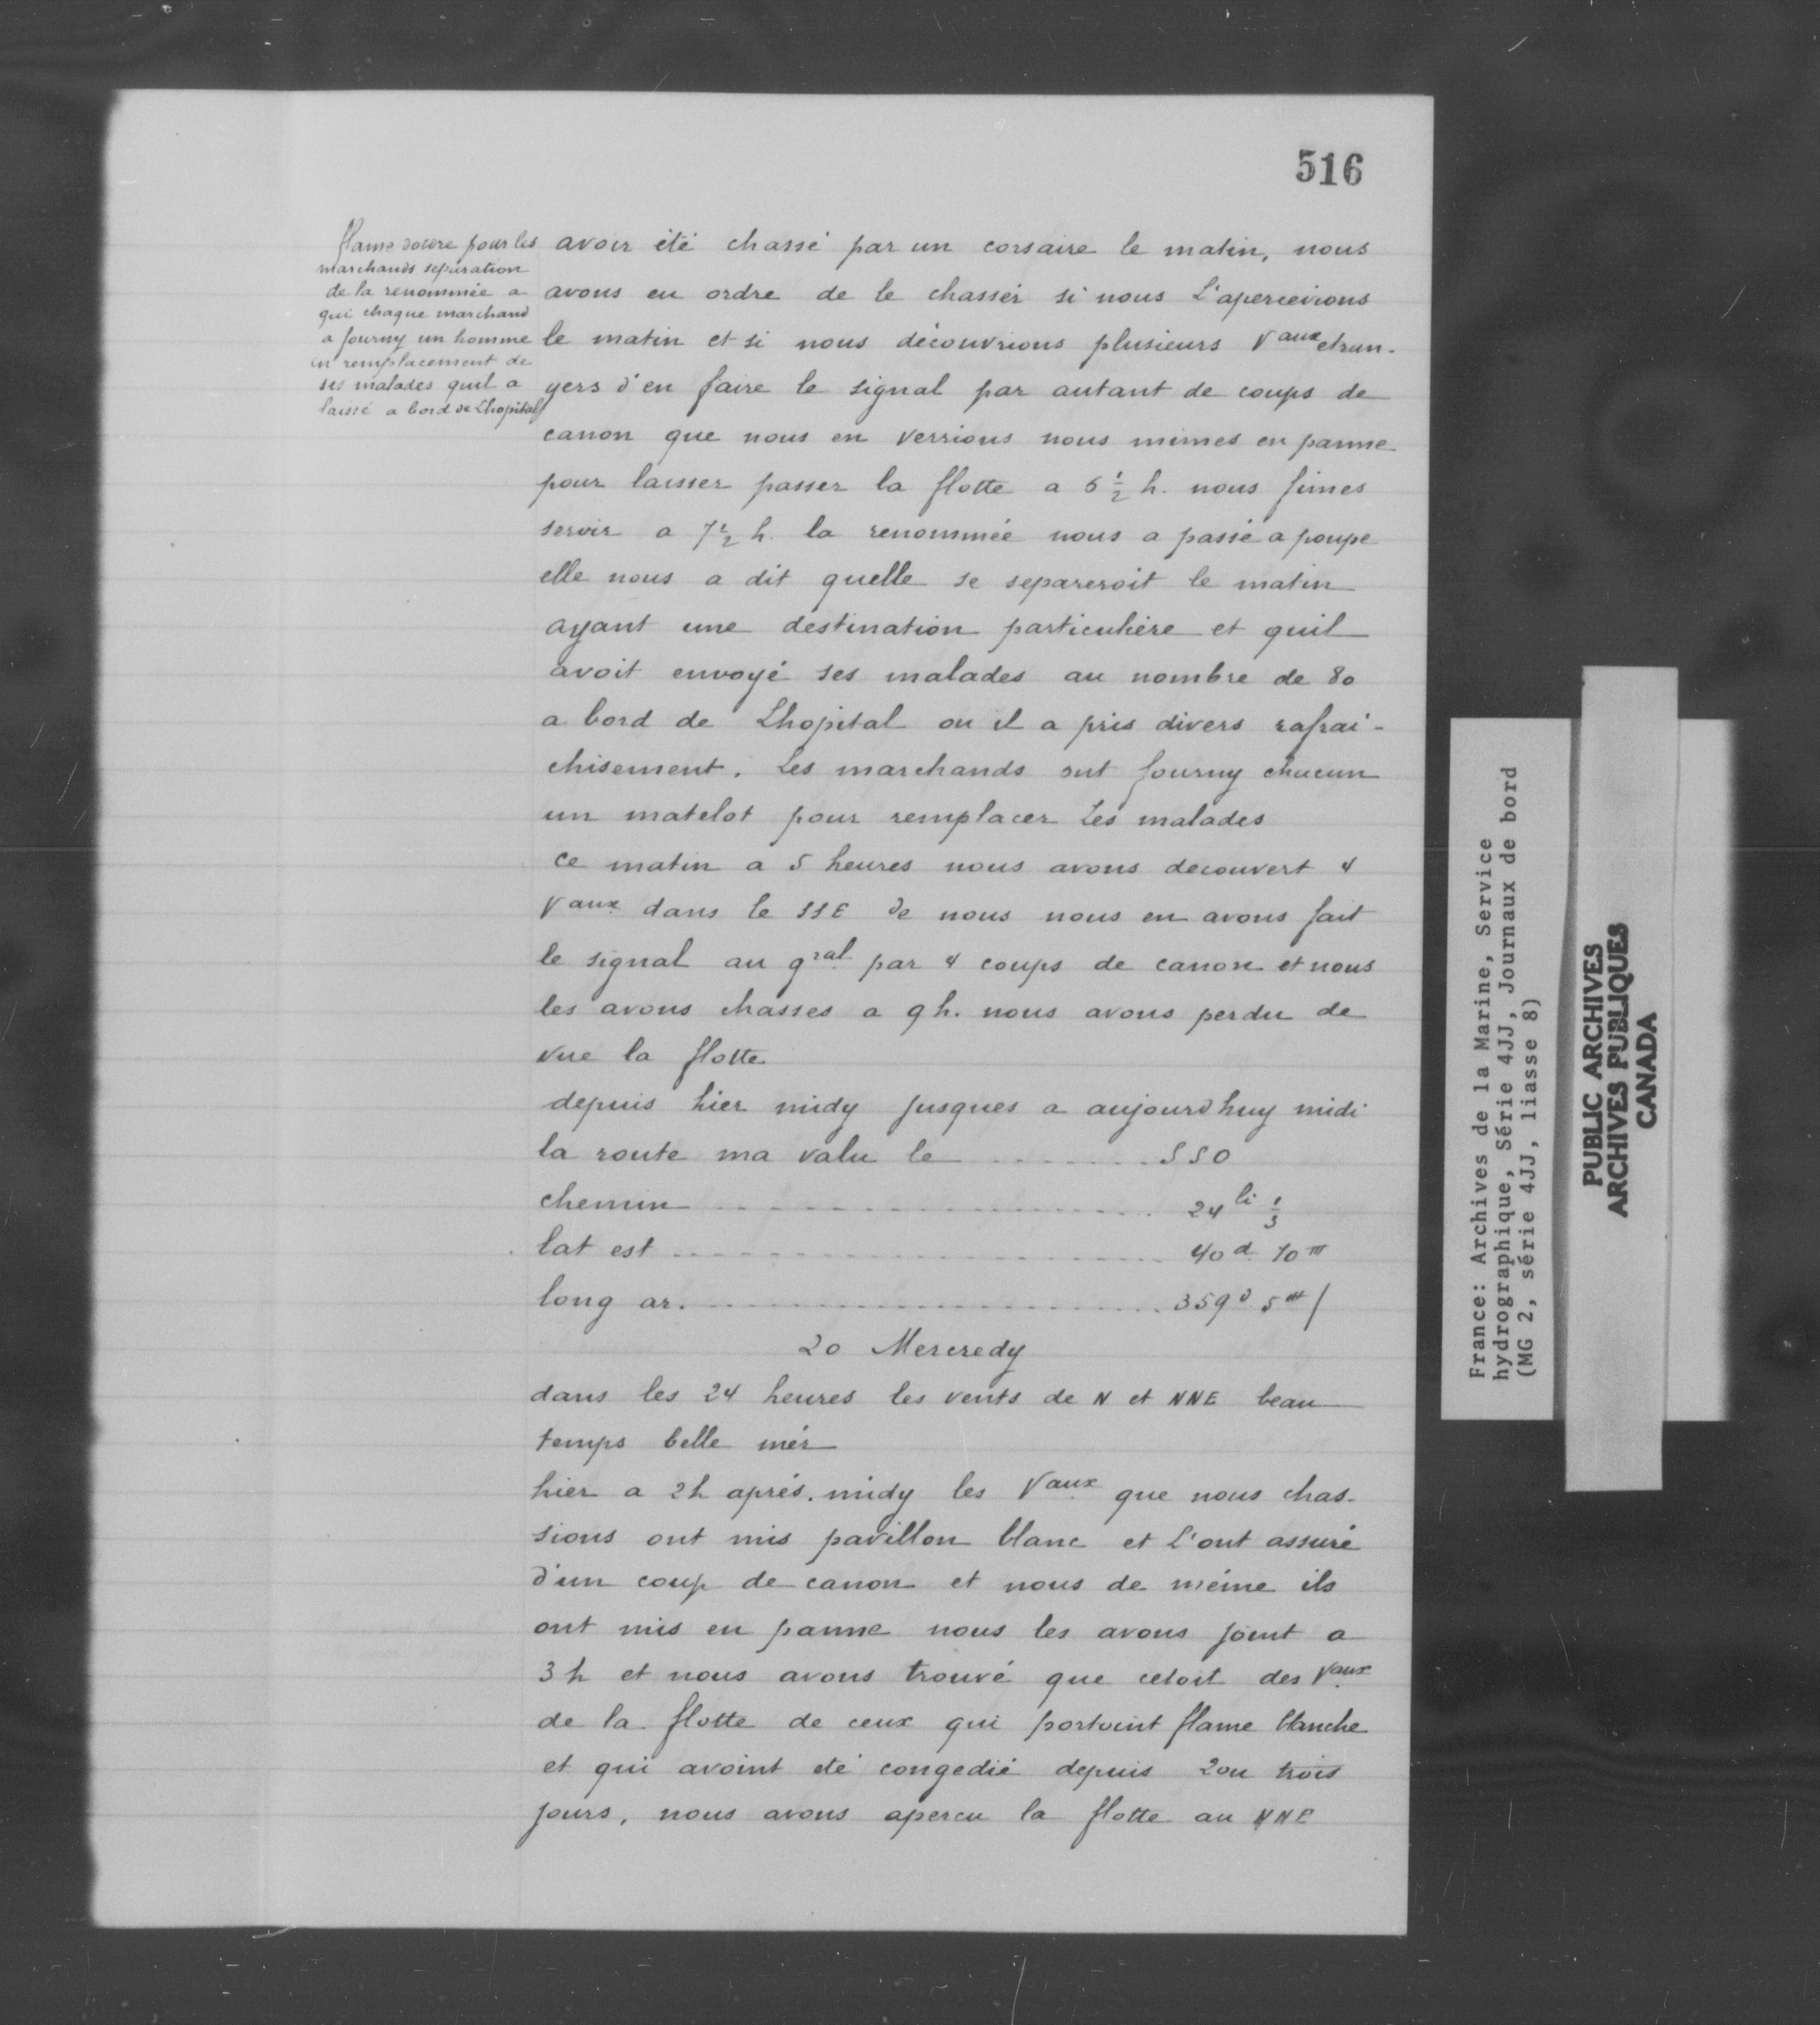 516
flame dordre pour les
marchands séparation
de la renommée a
qui chaque marchand
a fourny un homme
en remplacement de
ses malades quil a
laissé a bord de Lhopital
avoir été chassé par un corsaire le matin, nous
avons eu ordre de le chasser si nous L'aperceivons
le matin et si nous découvrions plusieurs Vaux etran-
gers d'en faire le signal par autant de coups de
canon que nous en verrions nous mimes en panne
pour laisser passer la flotte a 6 1/2 h. nous fimes
servir a 7 1/2 h. la renommée nous a passé a poupe
elle nous a dit quelle se separeroit le matin
ayant une destination particulière et quil
avoit envoyé ses malades au nombre de 80
a bord de Lhopital ou il a pris divers rafrai-
chisement. Les marchands ont fourny chucun
un matelot pour remplacer Les malades
ce matin a 5 heures nous avons decouvert 4
Vaux dans le SSE de nous nous en avons fait
le signal au gral par 4 coups de canon et nous
les avons chasses a 9 h. nous avons perdu de
vue la flotte
depuis hier midy jusques a aujourdhuy midi
la route ma valu le ........ SSO
chemin ........ 24 li 1/3
lat est ........ 40 d. 10 m
long ar. ........ 359 d 5 m /
20 Mercredy
dans les 24 heures les vents de N et NNE beau
temps belle mér
hier a 2h aprés. midy les Vaux que nous chas-
sions ont mis pavillon blanc et l'ont assuré
d'un coup de canon et nous de méme ils
ont mis en panne nous les avons joint a
3 h et nous avons trouvé que cetoit des Vaux
de la flotte de ceux qui portoint flame blanche
et qui avoint eté congedié depuis 2 ou trois
jours, nous avons apercu la flotte au NNE
France: Archives de la Marine, Service
hydrographique, Série 4JJ, Journaux de bord
(MG 2, série 4JJ, liasse 8)
PUBLIC ARCHIVES
ARCHIVES PUBLIQUES
CANADA